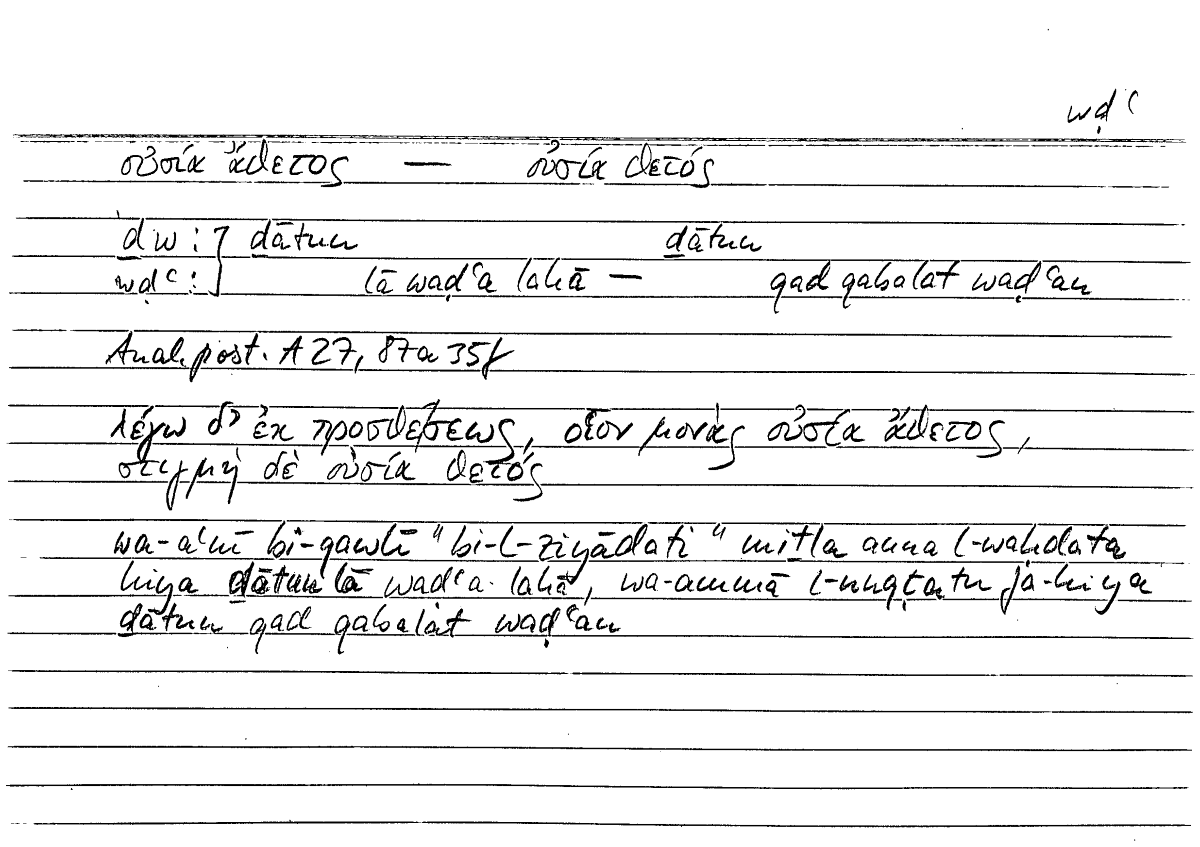 wḍʿ
οὐσία ἄθετος — οὐσία θετός
ḏw : ḏātun ḏātun
wḍʿ : lā waḍʿa lahā — qad qabalat waḍʿan
Anal. post. A 27, 87a 35f
λέγω δ' ἐκ προσθέσεως, οἷον μονὰς οὐσία ἄθετος,
στιγμὴ δὲ οὐσία θετός
wa-aʿnī bi-qawlī "bi-l-ziyādati" miṯla anna l-waḥdata
hiya ḏātun lā waḍʿa lahā, wa-ammā l-nuqṭatu fa-hiya
ḏātun qad qabalat waḍʿan